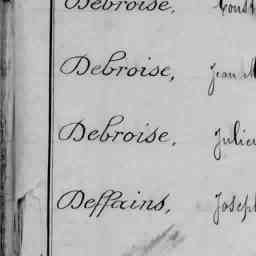 Debroise, Const
Debroise, Jean M
Debroise, Julien
Deffains, Joseph